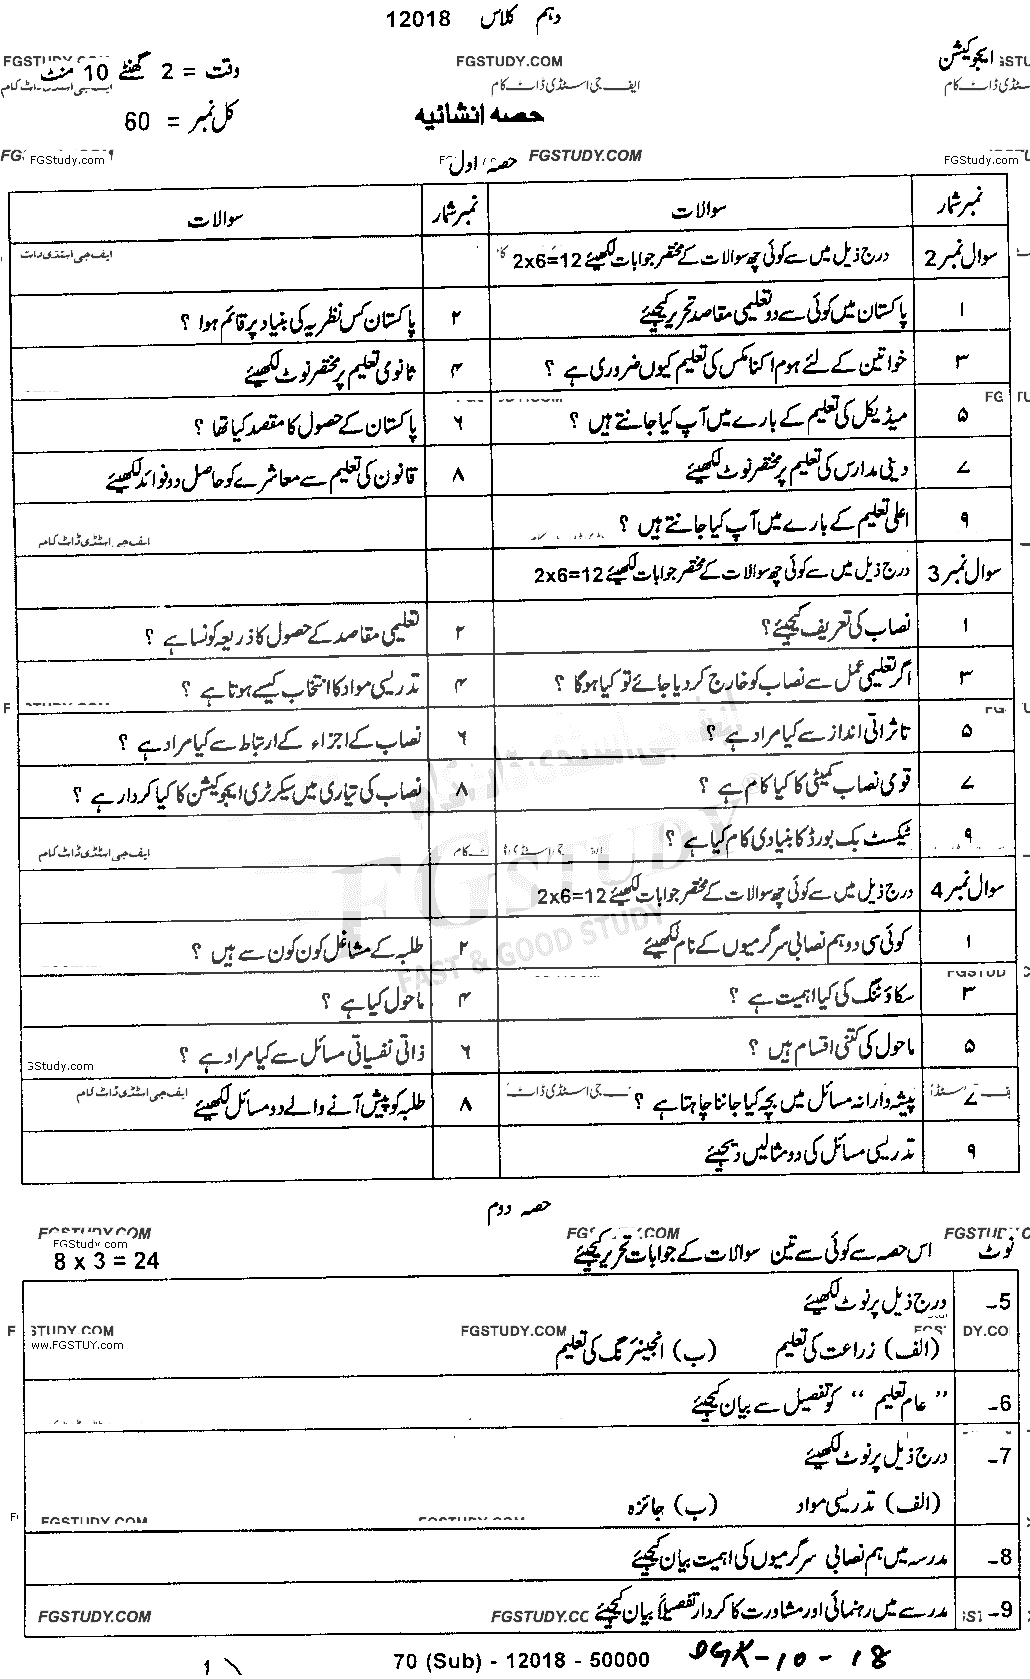 دہم کلاس 12018
ایجوکیشن
FGSTUDY.COM
وقت = 2 گھنٹے 10 منٹ
ایف جی اسٹڈی ڈاٹ کام
حصہ انشائیہ
کل نمبر = 60
FGStudy.com
حصہ اول
FGSTUDY.COM
FGStudy.com
نمبر شمار سوالات نمبر شمار سوالات
سوال نمبر 2 درج ذیل میں سے کوئی چھ سوالات کے مختصر جوابات لکھیئے 2x6=12
ایف جی اسٹڈی ڈاٹ
۱ پاکستان میں کوئی سے دو تعلیمی مقاصد تحریر کیجیئے ۲ پاکستان کس نظریہ کی بنیاد پر قائم ہوا ؟
۳ خواتین کے لئے ہوم اکنامکس کی تعلیم کیوں ضروری ہے ؟ ۴ ثانوی تعلیم پر مختصر نوٹ لکھیئے
۵ میڈیکل کی تعلیم کے بارے میں آپ کیا جانتے ہیں ؟ ۶ پاکستان کے حصول کا مقصد کیا تھا ؟
۷ دینی مدارس کی تعلیم پر مختصر نوٹ لکھیئے ۸ قانون کی تعلیم سے معاشرے کو حاصل دو فوائد لکھیئے
۹ اعلیٰ تعلیم کے بارے میں آپ کیا جانتے ہیں ؟
ایف جی اسٹڈی ڈاٹ کام
سوال نمبر 3 درج ذیل میں سے کوئی چھ سوالات کے مختصر جوابات لکھیئے 2x6=12
۱ نصاب کی تعریف کیجیئے ؟ ۲ تعلیمی مقاصد کے حصول کا ذریعہ کونسا ہے ؟
۳ اگر تعلیمی عمل سے نصاب کو خارج کر دیا جائے تو کیا ہوگا ؟ ۴ تدریسی مواد کا انتخاب کیسے ہوتا ہے ؟
۵ تاثراتی انداز سے کیا مراد ہے ؟ ۶ نصاب کے اجزاء کے ارتباط سے کیا مراد ہے ؟
۷ قومی نصاب کمیٹی کا کیا کام ہے ؟ ۸ نصاب کی تیاری میں سیکرٹری ایجوکیشن کا کیا کردار ہے ؟
۹ ٹیکسٹ بک بورڈ کا بنیادی کام کیا ہے ؟
ایف جی اسٹڈی ڈاٹ کام
FGSTUDY
FAST & GOOD STUDY
سوال نمبر 4 درج ذیل میں سے کوئی چھ سوالات کے مختصر جوابات لکھیئے 2x6=12
۱ کوئی سی دو ہم نصابی سرگرمیوں کے نام لکھیئے ۲ طلبہ کے مشاغل کون کون سے ہیں ؟
۳ سکاؤٹنگ کی کیا اہمیت ہے ؟ ۴ ماحول کیا ہے ؟
۵ ماحول کی کتنی اقسام ہیں ؟ ۶ ذاتی نفسیاتی مسائل سے کیا مراد ہے ؟
۷ پیشہ وارانہ مسائل میں بچہ کیا جاننا چاہتا ہے ؟ ۸ طلبہ کو پیش آنے والے دو مسائل لکھیئے
ایف جی اسٹڈی ڈاٹ کام
۹ تدریسی مسائل کی دو مثالیں دیجیئے
حصہ دوم
FGSTUDY.COM
FGStudy.com
نوٹ اس حصہ سے کوئی سے تین سوالات کے جوابات تحریر کیجیئے 8 x 3 = 24
5ـ درج ذیل پر نوٹ لکھیئے
FGSTUDY.COM
(الف) زراعت کی تعلیم (ب) انجینئرنگ کی تعلیم
6ـ " عام تعلیم " کو تفصیل سے بیان کیجیئے
7ـ درج ذیل پر نوٹ لکھیئے
(الف) تدریسی مواد (ب) جائزہ
FGSTUDY.COM
8ـ مدرسہ میں ہم نصابی سرگرمیوں کی اہمیت بیان کیجیئے
9ـ مدرسے میں رہنمائی اور مشاورت کا کردار تفصیلاً بیان کیجیئے
FGSTUDY.COM
70 (Sub) - 12018 - 50000 DGK-10-18